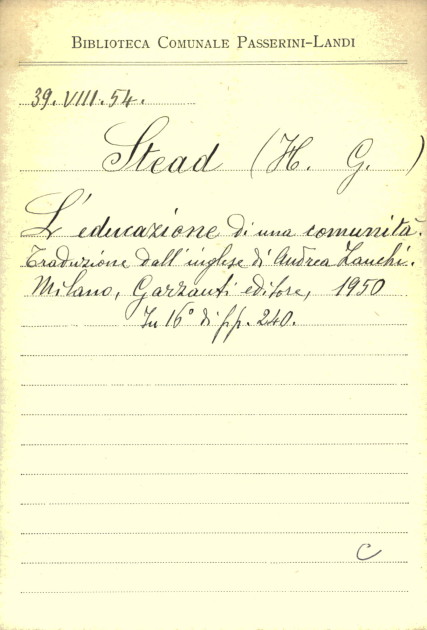 BIBLIOTECA COMUNALE PASSERINI-LANDI
39. VIII. 54.
Stead (H. G.)
L'educazione di una comunità.
Traduzione dall'inglese di Andrea Zanchi.
Milano, Garzanti editore, 1950
In 16° di pp. 240.
C